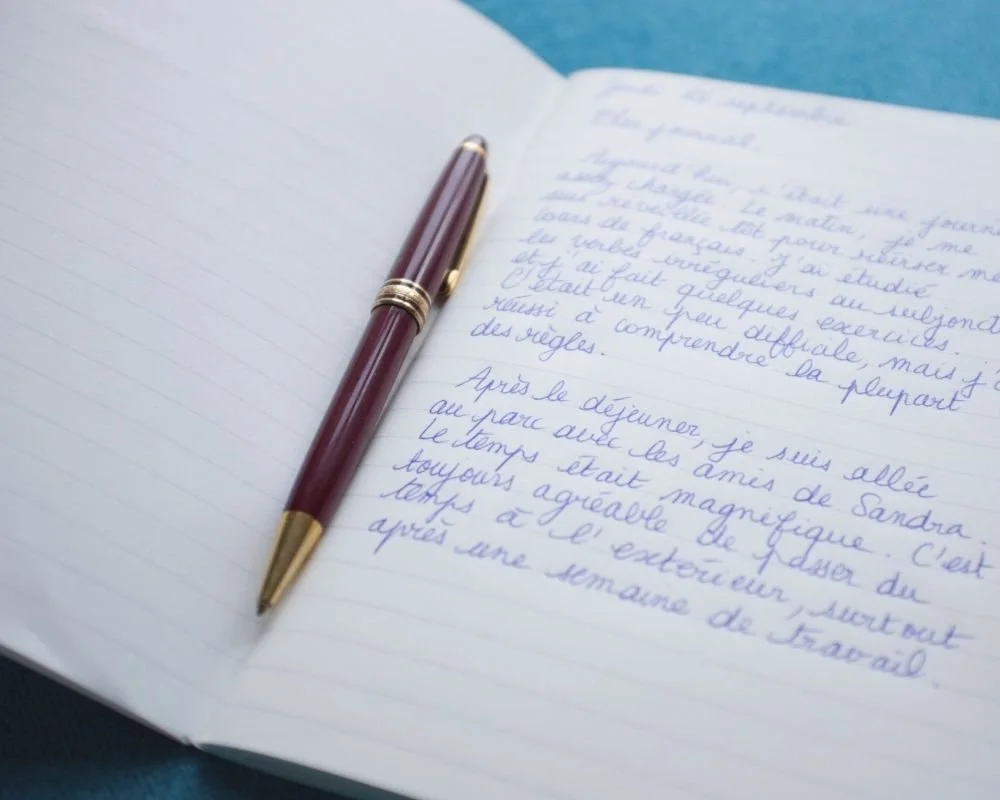 septembre
Cher journal.
Aujourd'hui, c'était une journ
assez chargée. Le matin, je me
suis réveillée tôt pour réviser me
cours de français. J'ai étudié
les verbes irréguliers au subjonct
et j'ai fait quelques exercices.
C'était un peu difficile, mais j'
réussi à comprendre la plupart
des règles.
Après le déjeuner, je suis allée
au parc avec les amis de Sandra.
Le temps était magnifique. C'est
toujours agréable de passer du
temps à l'extérieur, surtout
après une semaine de travail.